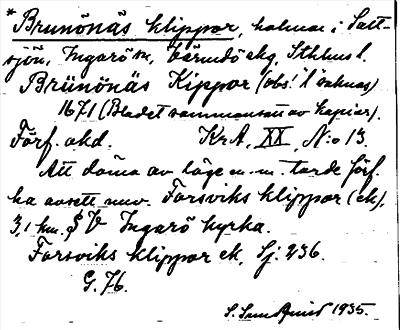 * Brunönäs klippor, holmar i Salt-
sjön, Ingarö sn, Värmdö skg, Sthlms l.
Brünönäs Kippor (obs. l saknas)
1671 (Bladet sammansatt av kopior).
Förf. okd. KrA, XX, N:o 13.
Att döma av läge m. m. torde förf.
ha avsett nuv. Forsviks klippor (ek),
3,1 km. SV Ingarö kyrka.
Forsviks klippor ek, Sj. 236.
G. 76.
S. Sundquist 1935.